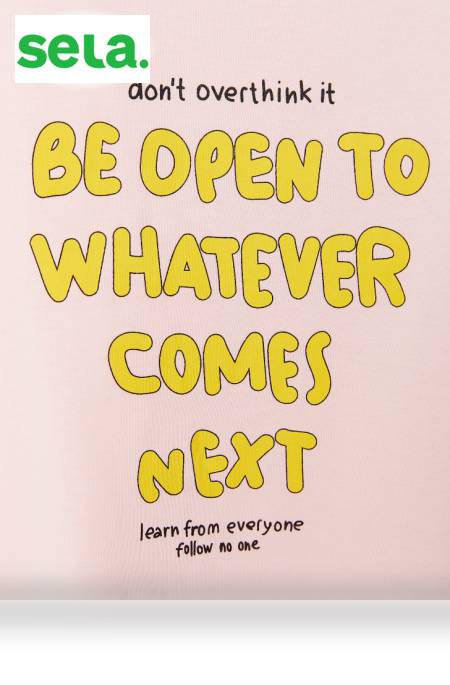 sela.
don't overthink it
BE OPEN TO
WHATEVER
COMES
NEXT
learn from everyone
follow no one